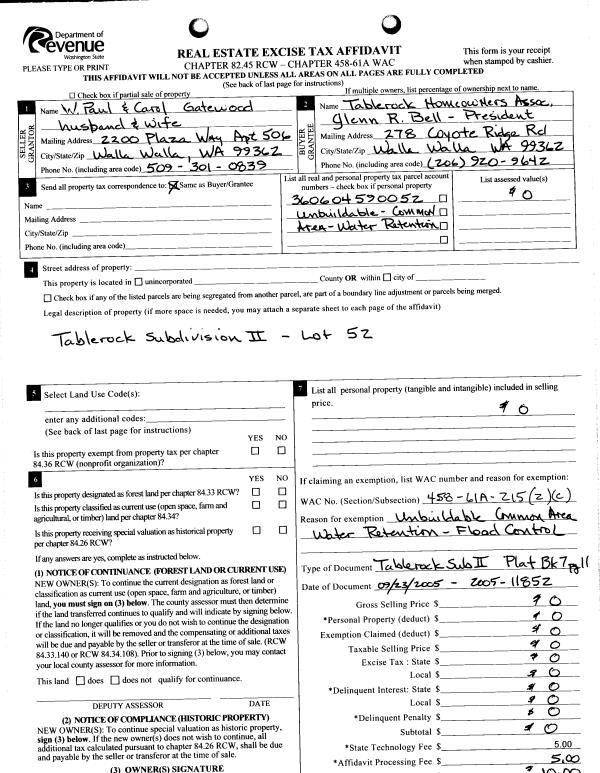 Department of
Revenue
Washington State
PLEASE TYPE OR PRINT
REAL ESTATE EXCISE TAX AFFIDAVIT
CHAPTER 82.45 RCW – CHAPTER 458-61A WAC
This form is your receipt
when stamped by cashier.
THIS AFFIDAVIT WILL NOT BE ACCEPTED UNLESS ALL AREAS ON ALL PAGES ARE FULLY COMPLETED
(See back of last page for instructions)
☐ Check box if partial sale of property
If multiple owners, list percentage of ownership next to name.
1
SELLER
GRANTOR
Name W. Paul & Carol Gatewood
husband & wife
Mailing Address 2200 Plaza Way Apt 506
City/State/Zip Walla Walla, WA 99362
Phone No. (including area code) 509-301-0839
2
BUYER
GRANTEE
Name Tablerock Homeowners Assoc.
Glenn R. Bell - President
Mailing Address 278 Coyote Ridge Rd
City/State/Zip Walla Walla, WA 99362
Phone No. (including area code) (206) 920-9642
3
Send all property tax correspondence to: ☒ Same as Buyer/Grantee
Name
Mailing Address
City/State/Zip
Phone No. (including area code)
List all real and personal property tax parcel account
numbers – check box if personal property
360604590052 ☐
Unbuildable - Common ☐
Area - Water Retention ☐
☐
List assessed value(s)
$ 0
4
Street address of property:
This property is located in ☐ unincorporated County OR within ☐ city of
☐ Check box if any of the listed parcels are being segregated from another parcel, are part of a boundary line adjustment or parcels being merged.
Legal description of property (if more space is needed, you may attach a separate sheet to each page of the affidavit)
Tablerock Subdivision II - Lot 52
5
Select Land Use Code(s):
enter any additional codes:
(See back of last page for instructions)
YES NO
Is this property exempt from property tax per chapter
84.36 RCW (nonprofit organization)? ☐ ☐
6
YES NO
Is this property designated as forest land per chapter 84.33 RCW? ☐ ☐
Is this property classified as current use (open space, farm and
agricultural, or timber) land per chapter 84.34? ☐ ☐
Is this property receiving special valuation as historical property
per chapter 84.26 RCW? ☐ ☐
If any answers are yes, complete as instructed below.
(1) NOTICE OF CONTINUANCE (FOREST LAND OR CURRENT USE)
NEW OWNER(S): To continue the current designation as forest land or
classification as current use (open space, farm and agriculture, or timber)
land, you must sign on (3) below. The county assessor must then determine
if the land transferred continues to qualify and will indicate by signing below.
If the land no longer qualifies or you do not wish to continue the designation
or classification, it will be removed and the compensating or additional taxes
will be due and payable by the seller or transferor at the time of sale. (RCW
84.33.140 or RCW 84.34.108). Prior to signing (3) below, you may contact
your local county assessor for more information.
This land ☐ does ☐ does not qualify for continuance.
DEPUTY ASSESSOR DATE
(2) NOTICE OF COMPLIANCE (HISTORIC PROPERTY)
NEW OWNER(S): To continue special valuation as historic property,
sign (3) below. If the new owner(s) does not wish to continue, all
additional tax calculated pursuant to chapter 84.26 RCW, shall be due
and payable by the seller or transferor at the time of sale.
(3) OWNER(S) SIGNATURE
7
List all personal property (tangible and intangible) included in selling
price.
$ 0
If claiming an exemption, list WAC number and reason for exemption:
WAC No. (Section/Subsection) 458-61A-215(2)(c)
Reason for exemption Unbuildable Common Area
Water Retention - Flood Control
Type of Document Tablerock Sub II Plat Bk 7 pg 11
Date of Document 09/23/2005 - 2005-11852
Gross Selling Price $ $ 0
*Personal Property (deduct) $ $ 0
Exemption Claimed (deduct) $ $ 0
Taxable Selling Price $ $ 0
Excise Tax : State $ $ 0
Local $ $ 0
*Delinquent Interest: State $ $ 0
Local $ $ 0
*Delinquent Penalty $ $ 0
Subtotal $ $ 0
*State Technology Fee $ 5.00
*Affidavit Processing Fee $ 5.00
10.00